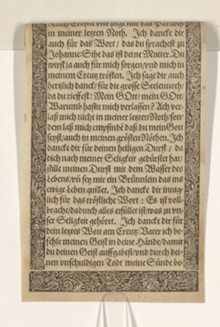 in meiner letzten Noth. Ich dancke dir
auch für das Wort / das du sprachest zu
Johanne: Sihe das ist deine Mutter. Du
wirst ja auch für mich sorgen / und mich in
meinem Creutz trösten. Ich sage dir auch
hertzlich danck / für die grosse Seelennoth /
da du rieffest: Mein GOtt / mein GOtt:
Warumb hastu mich verlassen? Ach ver-
laß mich nicht in meiner letzten Noth / son-
dern laß mich empfinden daß du mein Gott
seyst / auch in meinen grösten Nöthen. Ich
dancke dir für deinen heiligen Durst / da
dich nach meiner Seligkeit gedürstet hat /
stille meinen Durst mit dem Wasser des
Lebens / und sey mir ein Brünnlein das ins
ewige Leben quillet. Ich dancke dir innig-
lich für das tröstliche Wort: Es ist voll-
bracht / dadurch alles erfüllet ist was zu un-
ser Seligkeit gehöret. Ich dancke dir für
dein letztes Wort am Creutz: Vater ich be-
fehle meinen Geist in deine Hände / damit
du deinen Geist auffgabest / und durch dei-
nen unschuldigen Tode meine Sünde be-